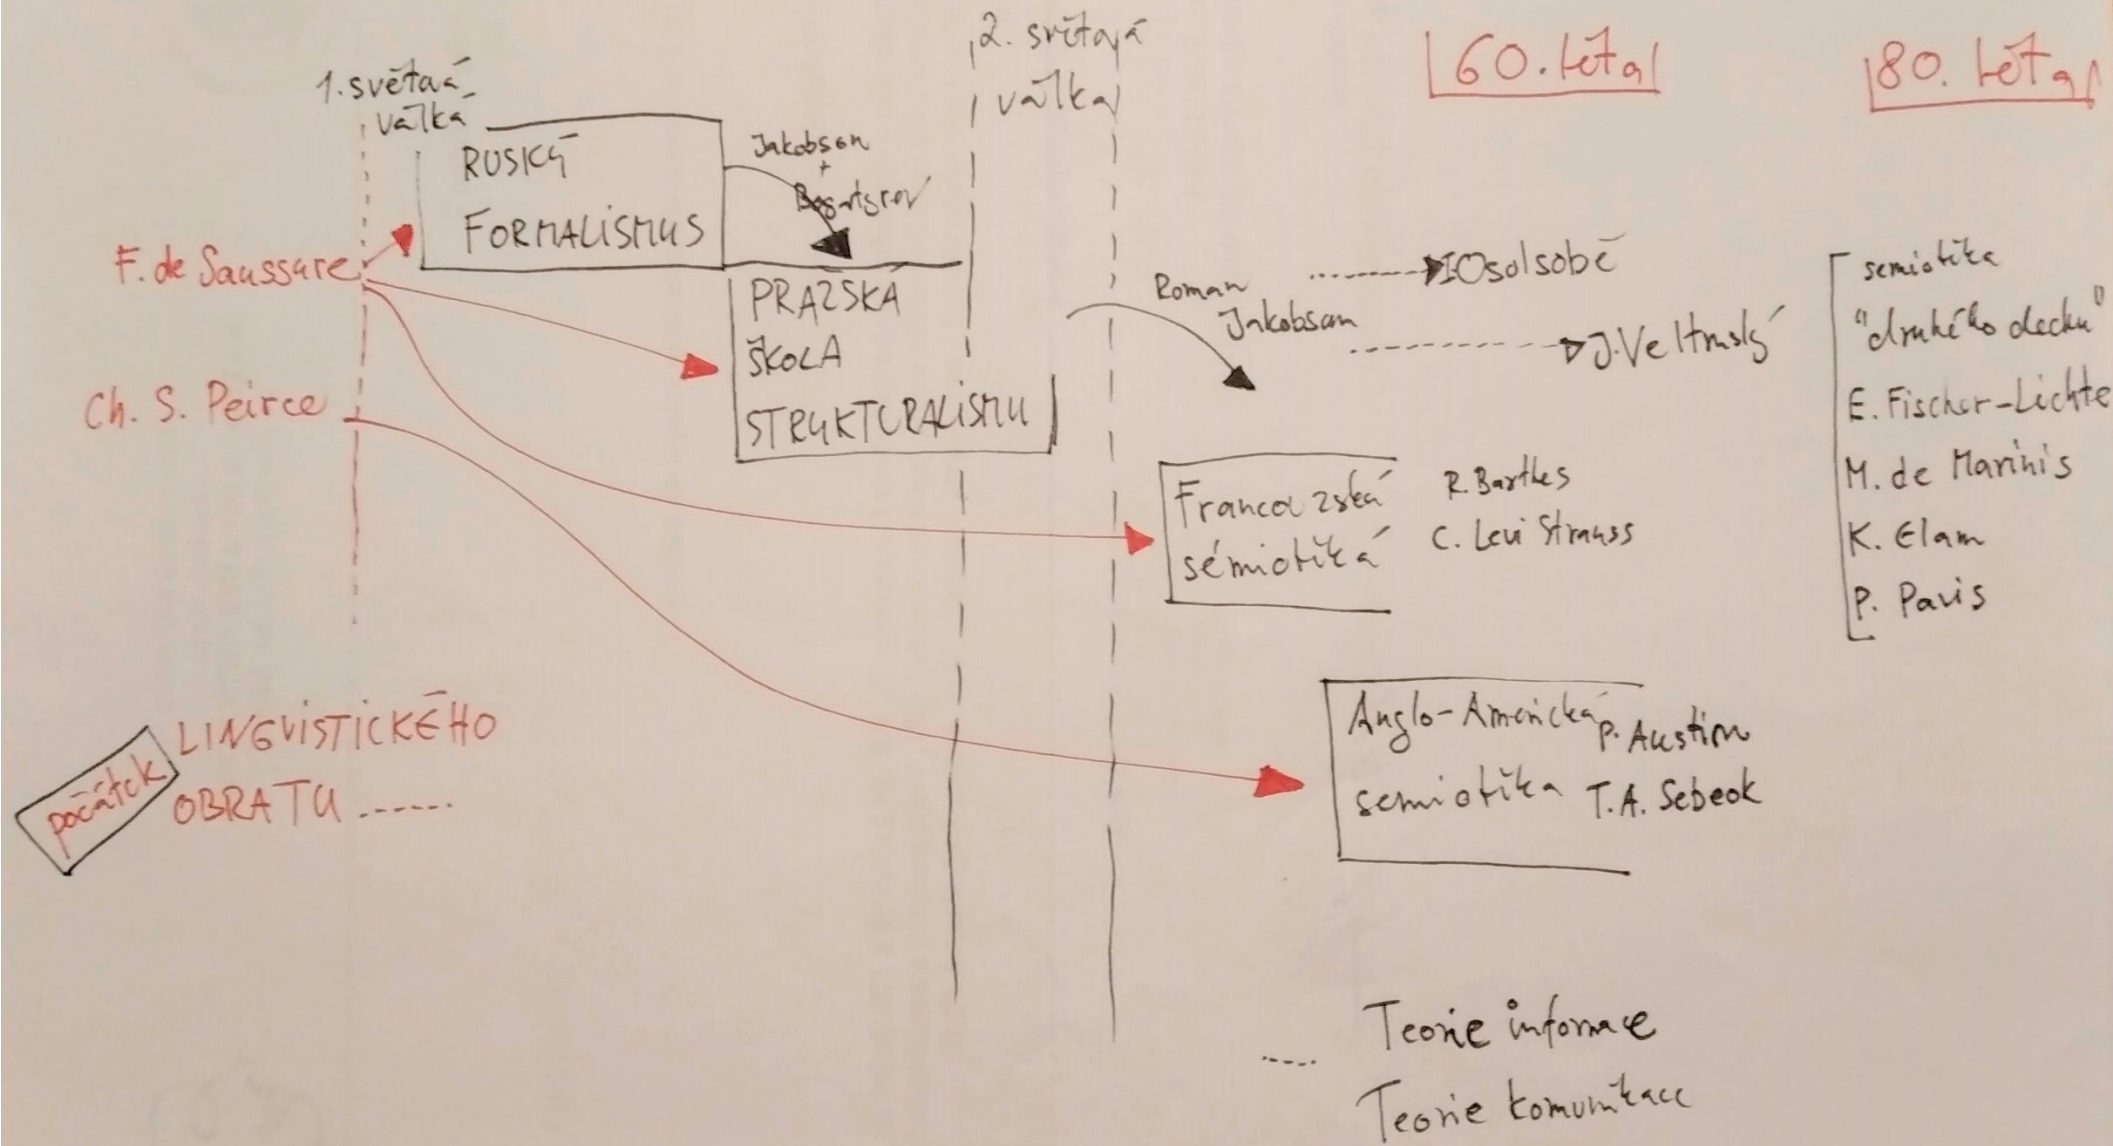 1. světová
válka
2. světová
válka
60. léta
80. léta
RUSKÝ
FORMALISMUS
Jakobson
+
Bogatyrev
F. de Saussure
Ch. S. Peirce
PRAŽSKÁ
ŠKOLA
STRUKTURALISMU
Roman
Jakobson
I Osolsobě
J. Veltruský
Francouzská
sémiotika
R. Barthes
C. Levi Strauss
Anglo-Americká
semiotika
P. Austin
T.A. Sebeok
semiotika
"druhého dechu"
E. Fischer-Lichte
M. de Marinis
K. Elam
P. Pavis
počátek
LINGVISTICKÉHO
OBRATU ......
.... Teorie informace
Teorie komunikace